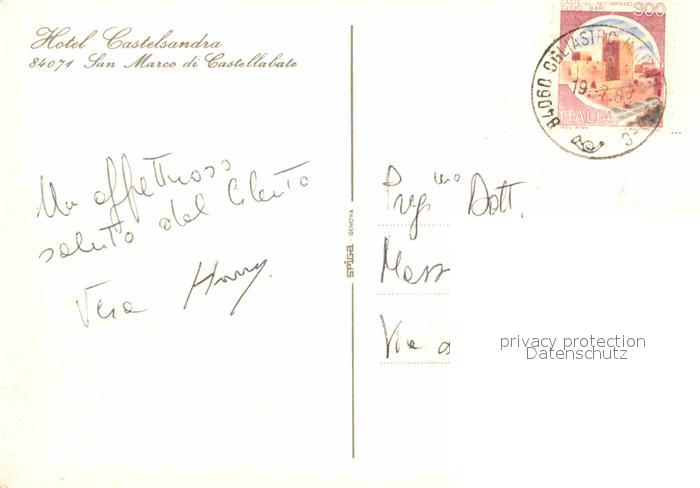 Hotel Castelsandra
84071 San Marco di Castellabate
Un affettuoso
saluto dal Cilento
Vera Harry
SPIGA GENOVA
300
84060 OGLIASTRO
19.7.83
ITALIA
Preg.mo Dott.
Mass
Via d
privacy protection
Datenschutz